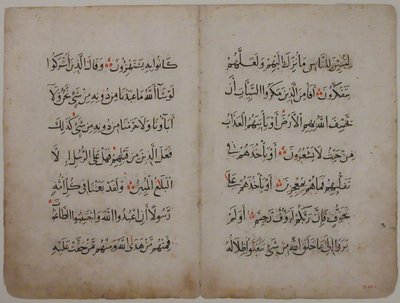 لتبين للناس ما نزل اليهم ولعلهم
يتفكرون افامن الذين مكروا السيئات أن
يخسف الله بهم الأرض أو يأتيهم العذاب
من حيث لا يشعرون أو يأخذهم في
تقلبهم فما هم بمعجزين أو يأخذهم على
تخوف فإن ربكم لرؤف رحيم أو لم
يروا إلى ما خلق الله من شئ يتفيؤا ظلاله
كانوا به يستهزؤن وقال الذين أشركوا
لو شاء الله ما عبدنا من دونه من شئ نحن ولا
آباؤنا ولا حرمنا من دونه من شئ كذلك
فعل الذين من قبلهم فهل على الرسل إلا
البلاغ المبين ولقد بعثنا في كل أمة
رسولا أن اعبدوا الله واجتنبوا الطاغوت
فمنهم من هدى الله ومنهم من حقت عليه